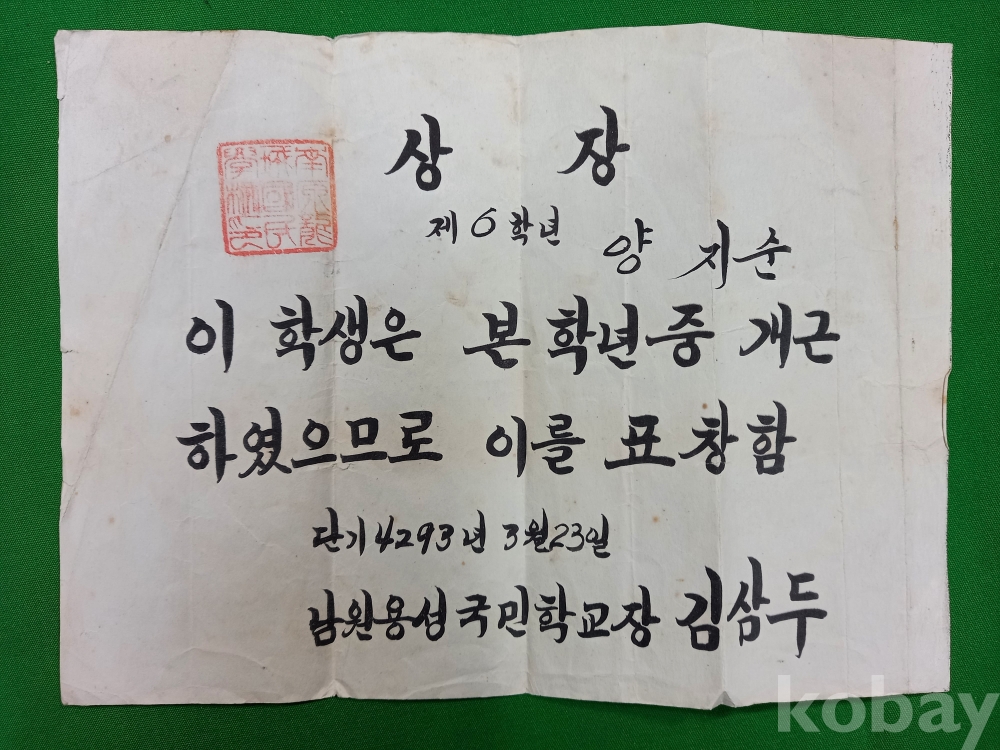 상 장
제 6 학년 양 지순
이 학생은 본 학년중 개근
하였으므로 이를 표창함
단기 4293년 3월23일
남원용성국민학교장 김삼두
kobay